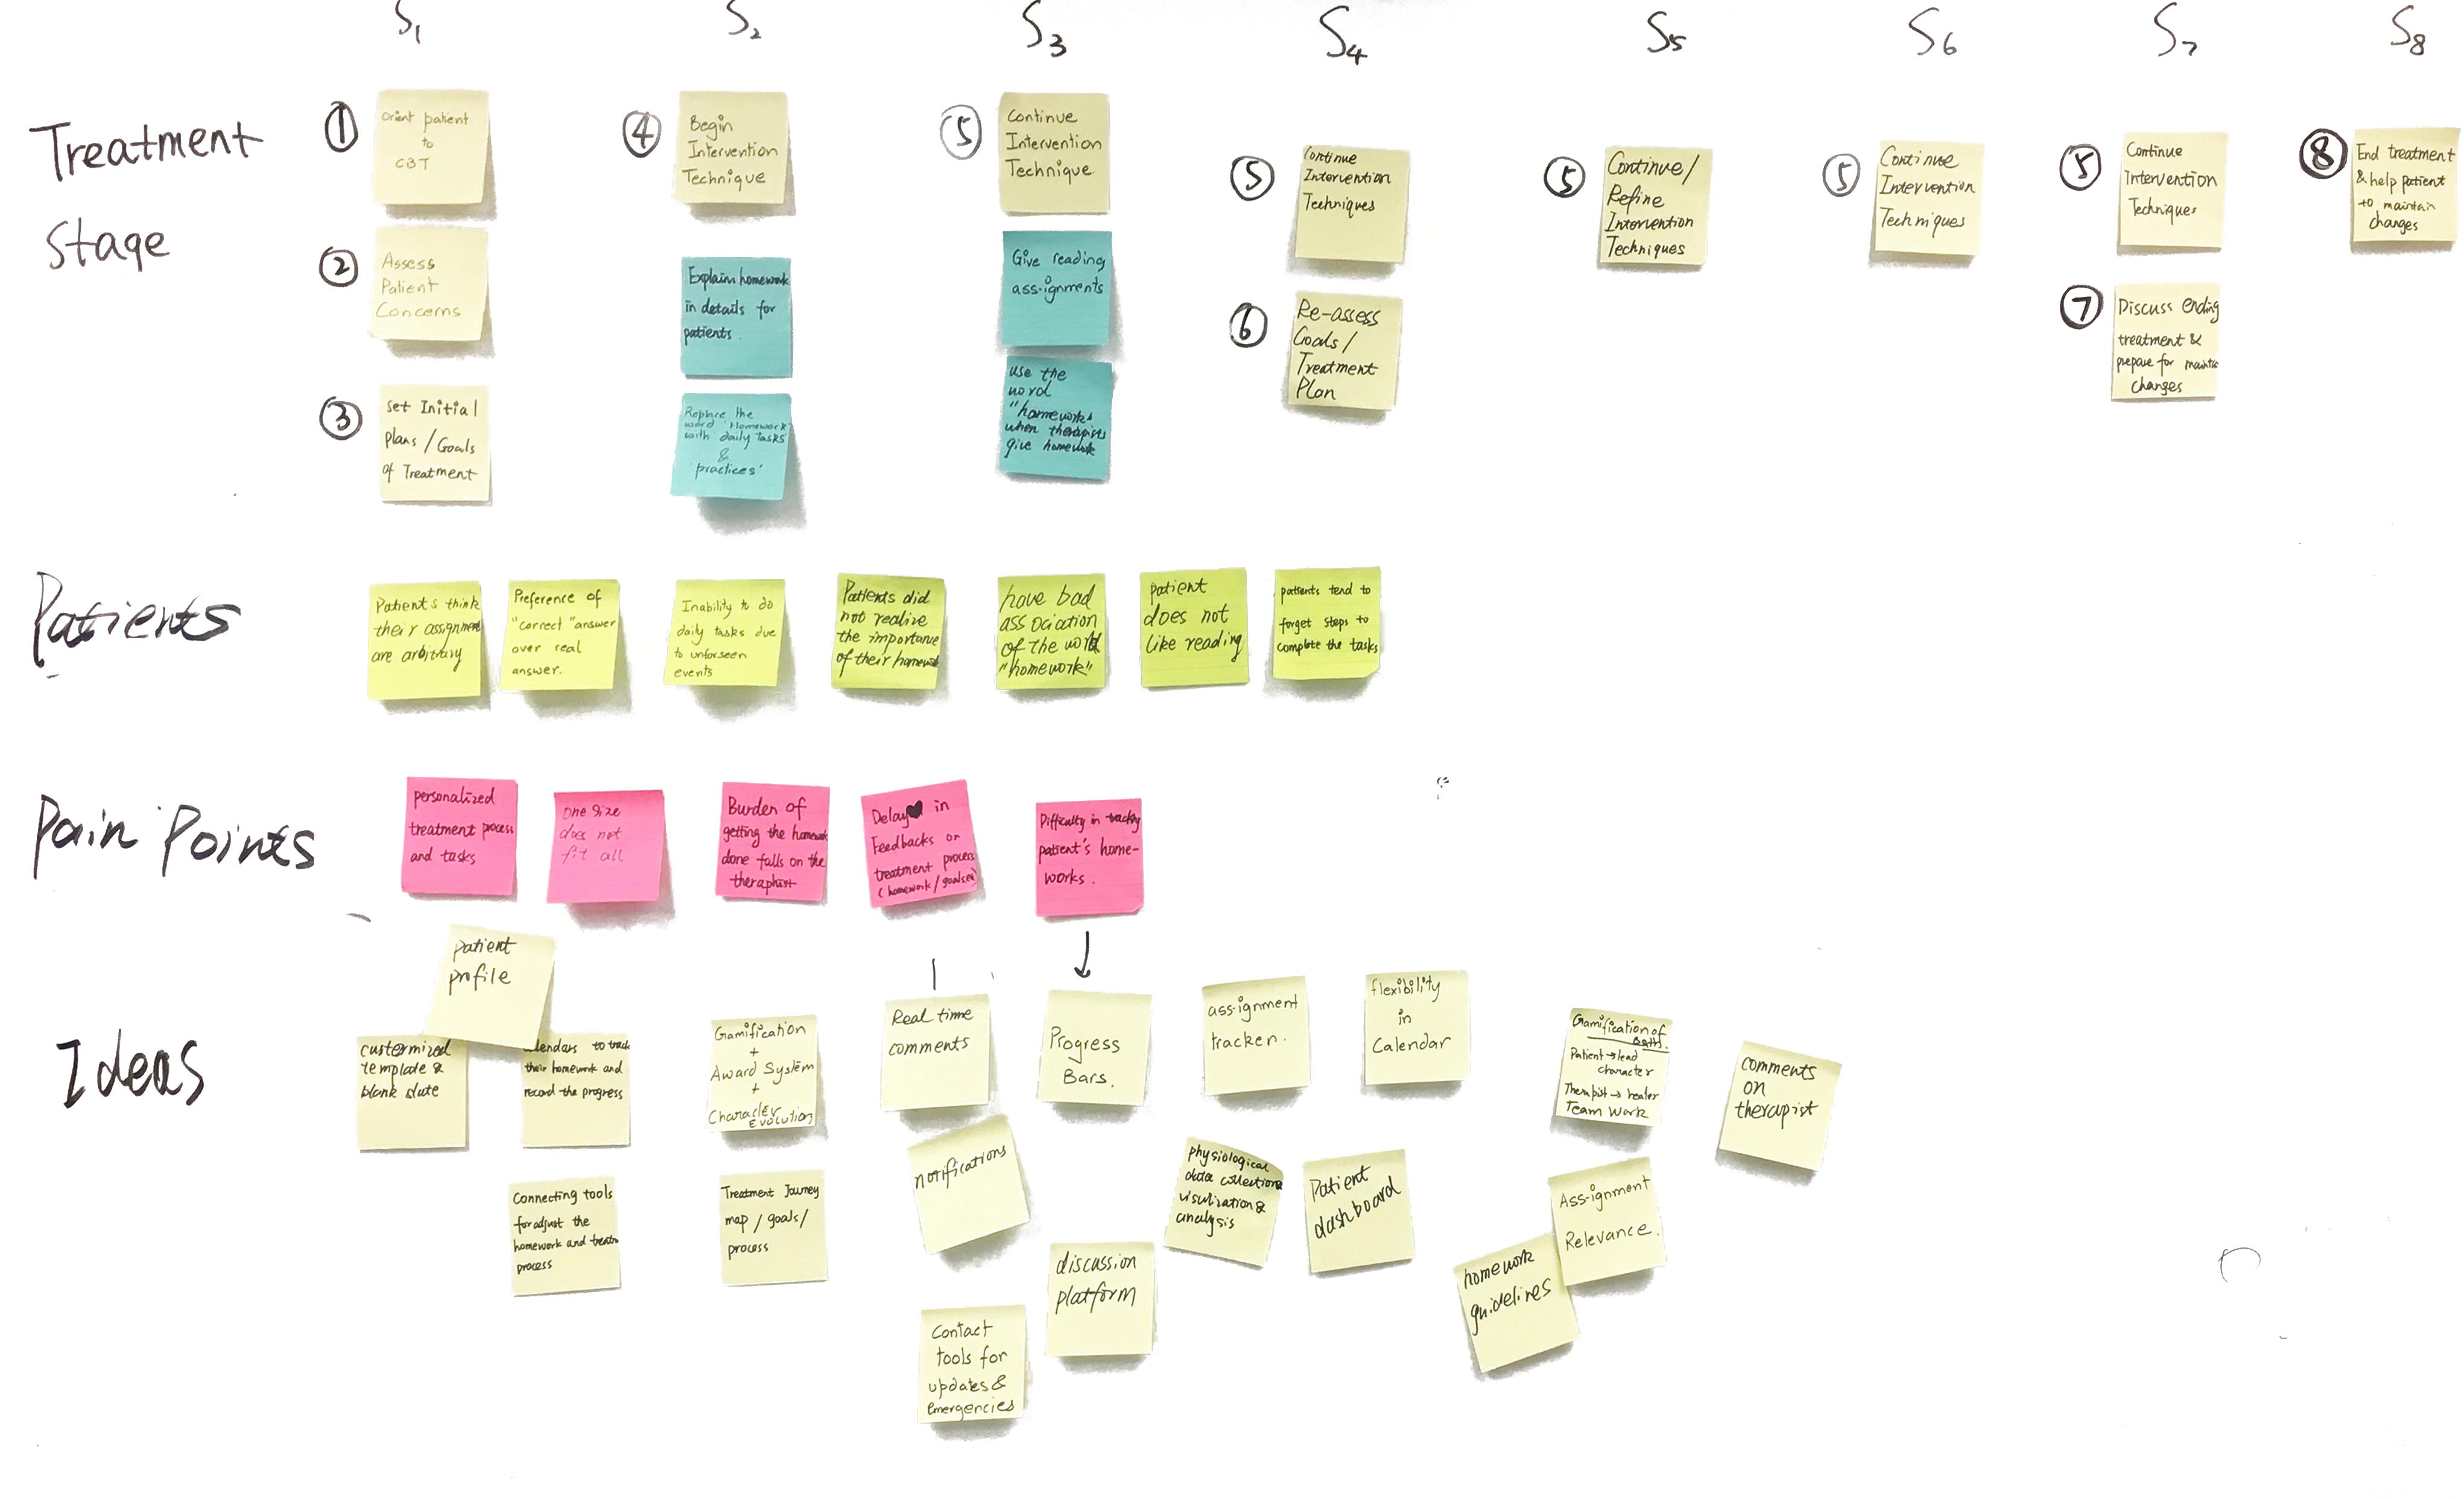 S1
S2
S3
S4
S5
S6
S7
S8
Treatment
Stage
①
Orient patient
to
CBT
②
Assess
Patient
Concerns
③
Set Initial
plans / Goals
of Treatment
④
Begin
Intervention
Technique
Explain homework
in details for
patients.
Replace the
word "Homework"
with 'daily tasks'
&
'practices'
⑤
Continue
Intervention
Technique.
Give reading
assignments
use the
word
"homework"
when therapists
give homework
⑤
Continue
Intervention
Techniques
⑥
Re-assess
Goals /
Treatment
Plan
⑤
Continue /
Refine
Intervention
Techniques
⑤
Continue
Intervention
Techniques
⑤
Continue
Intervention
Techniques
⑦
Discuss ending
treatment &
prepare for
changes
⑧
End treatment
& help patient
to maintain
changes
Patients
Patients think
their assignment
are arbitrary
Preference of
"correct" answer
over real
answer.
Inability to do
daily tasks due
to unforseen
events
Patients did
not realize
the importance
of their homework
have bad
association
of the world
"homework"
patient
does not
like reading
patients tend to
forget steps to
complete the tasks
Pain Points
personalized
treatment process
and tasks
one size
does not
fit all
Burden of
getting the homework
done falls on the
theraphist
Delay in
Feedbacks on
treatment process
(homework / goalset)
Difficulty in tracking
patient's home-
works.
Ideas
patient
profile
custermized
template &
blank slate
lendars to track
their homework and
record the progress
Connecting tools
for adjust the
homework and
process
Gamification
+
Award System
+
Character
Evolution
Treatment Journey
map / goals /
process
Real time
comments
notifications
Contact
tools for
updates &
emergencies
Progress
Bars.
discussion
platform
assignment
tracker.
physiological
data collection
visulization &
analysis
flexibility
in
Calendar
Patient
dashboard
Gamification of
both.
Patient → lead
character
Therapist → healer
Team Work
Assignment
Relevance.
homework
guidelines
comments
on
therapist